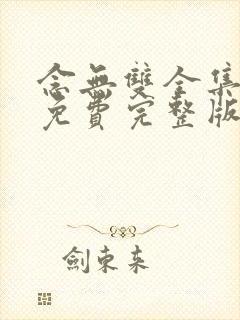 念無雙全集
免費完整版
劍東來